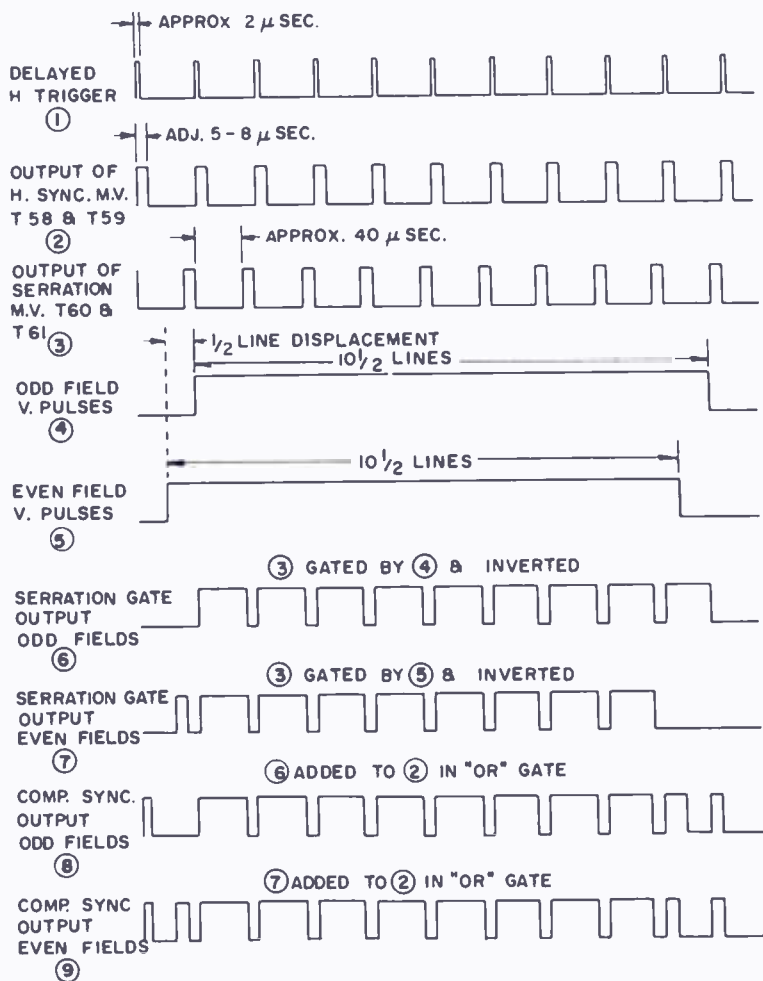 APPROX 2 μ SEC.
DELAYED
H TRIGGER
①
ADJ. 5 - 8 μ SEC.
OUTPUT OF
H. SYNC. M.V.
T 58 & T59
②
APPROX. 40 μ SEC.
OUTPUT OF
SERRATION
M.V. T60 &
T61
③
1/2 LINE DISPLACEMENT
10 1/2 LINES
ODD FIELD
V. PULSES
④
10 1/2 LINES
EVEN FIELD
V. PULSES
⑤
③ GATED BY ④ & INVERTED
SERRATION GATE
OUTPUT
ODD FIELDS
⑥
③ GATED BY ⑤ & INVERTED
SERRATION GATE
OUTPUT
EVEN FIELDS
⑦
⑥ ADDED TO ② IN "OR" GATE
COMP. SYNC.
OUTPUT
ODD FIELDS
⑧
⑦ ADDED TO ② IN "OR" GATE
COMP. SYNC
OUTPUT
EVEN FIELDS
⑨